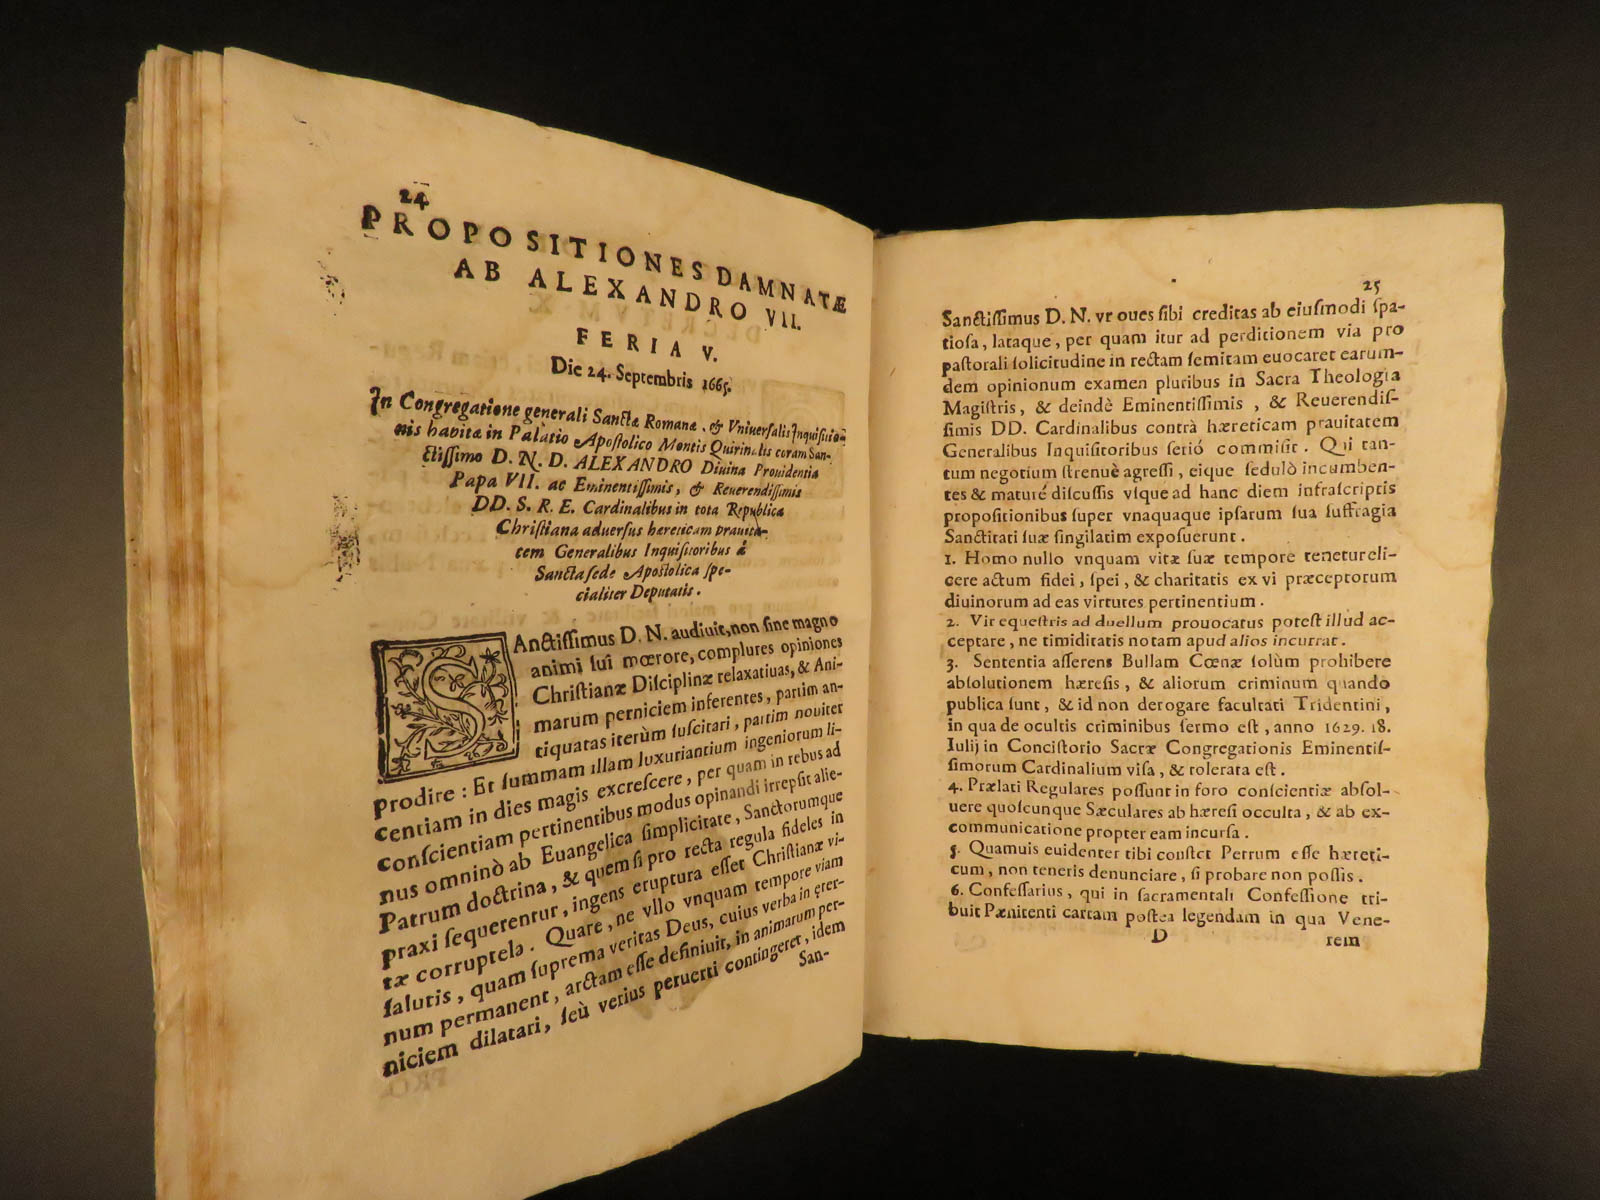 24
PROPOSITIONES DAMNATÆ
AB ALEXANDRO VII.
FERIA V.
Die 24. Septembris 1665.
In Congregatione generali Sanctæ Romanæ, & Vniuersalis Inquisitio-
nis habita in Palatio Apostolico Montis Quirinalis coram San-
ctissimo D. N. D. ALEXANDRO Diuina Prouidentia
Papa VII. ac Eminentissimis, & Reuerendissimis
DD. S. R. E. Cardinalibus in tota Republica
Christiana aduersus hereticam prauita-
tem Generalibus Inquisitoribus à
Sancta sede Apostolica spe-
cialiter Deputatis.
SAnctissimus D. N. audiuit, non sine magno
animi sui mœrore, complures opiniones
Christianæ Disciplinæ relaxatiuas, & Ani-
marum perniciem inferentes, partim an-
tiquatas iterùm suscitari, partim nouiter
prodire: Et summam illam luxuriantium ingeniorum li-
centiam in dies magis excrescere, per quam in rebus ad
conscientiam pertinentibus modus opinandi irrepsit alie-
nus omninò ab Euangelica simplicitate, Sanctorumque
Patrum doctrina, & quem si pro recta regula fideles in
praxi sequerentur, ingens eruptura esset Christianæ vi-
tæ corruptela. Quare, ne vllo vnquam tempore viam
salutis, quam suprema veritas Deus, cuius verba in æter-
num permanent, arctam esse definiuit, in animarum per-
niciem dilatari, seù verius peruerti contingeret, idem
San-
25
Sanctissimus D. N. vr oues sibi creditas ab eiusmodi spa-
tiosa, lataque, per quam itur ad perditionem via pro
pastorali solicitudine in rectam semitam euocaret earum-
dem opinionum examen pluribus in Sacra Theologia
Magistris, & deindè Eminentissimis, & Reuerendis-
simis DD. Cardinalibus contrà hæreticam prauitatem
Generalibus Inquisitoribus seriò commisit. Qui tan-
tum negotium strenuè agressi, eique sedulò incumben-
tes & maturé discussis vsque ad hanc diem infrascriptis
propositionibus super vnaquaque ipsarum sua suffragia
Sanctitati suæ singilatim exposuerunt.
1. Homo nullo vnquam vitæ suæ tempore tenetur eli-
cere actum fidei, spei, & charitatis ex vi præceptorum
diuinorum ad eas virtutes pertinentium.
2. Vir equestris ad duellum prouocatus potest illud ac-
ceptare, ne timiditatis notam apud alios incurrat.
3. Sententia asserens Bullam Cœnæ solùm prohibere
absolutionem hæresis, & aliorum criminum quando
publica sunt, & id non derogare facultati Tridentini,
in qua de ocultis criminibus sermo est, anno 1629. 18.
Iulij in Concistorio Sacræ Congregationis Eminentis-
simorum Cardinalium visa, & tolerata est.
4. Prælati Regulares possunt in foro conscientiæ absol-
uere quoscunque Sæculares ab hæresi occulta, & ab ex-
communicatione propter eam incursa.
5. Quamuis euidenter tibi constet Petrum esse hæreti-
cum, non teneris denunciare, si probare non possis.
6. Confessarius, qui in sacramentali Confessione tri-
buit Pænitenti cartam postea legendam in qua Vene-
D
rem